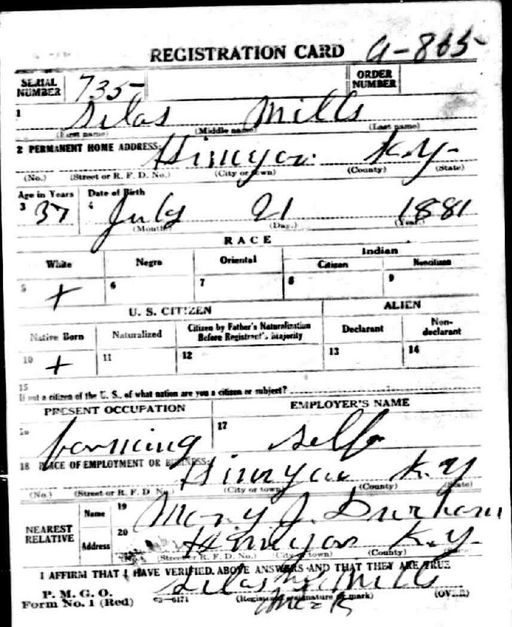 REGISTRATION CARD A-865
SERIAL NUMBER 735 ORDER NUMBER
1 Silas Mills
(First name) (Middle name) (Last name)
2 PERMANENT HOME ADDRESS: Himyar Ky.
(No.) (Street or R. F. D. No.) (City or town) (County) (State)
Age in Years Date of Birth
3 37 4 July 21 1881
(Month) (Day.) (Year.)
RACE
White Negro Oriental Indian
Citizen Noncitizen
5 X 6 7 8 9
U. S. CITIZEN ALIEN
Native Born Naturalized Citizen by Father's Naturalization Before Registrant's Majority Declarant Non-declarant
10 X 11 12 13 14
15
If not a citizen of the U. S., of what nation are you a citizen or subject?
PRESENT OCCUPATION EMPLOYER'S NAME
16 farming 17 self
18 PLACE OF EMPLOYMENT OR BUSINESS: Himyar Ky
(No.) (Street or R. F. D. No.) (City or town) (County) (State)
NEAREST RELATIVE
Name 19 Mary J. Durham
Address 20 Himyar Ky.
(No.) (Street or R. F. D. No.) (City or town) (County) (State)
I AFFIRM THAT I HAVE VERIFIED ABOVE ANSWERS AND THAT THEY ARE TRUE
P. M. G. O.
Form No. 1 (Red) 03—6171 Silas his Mills
(Registrant's signature or mark) (OVER)
mark